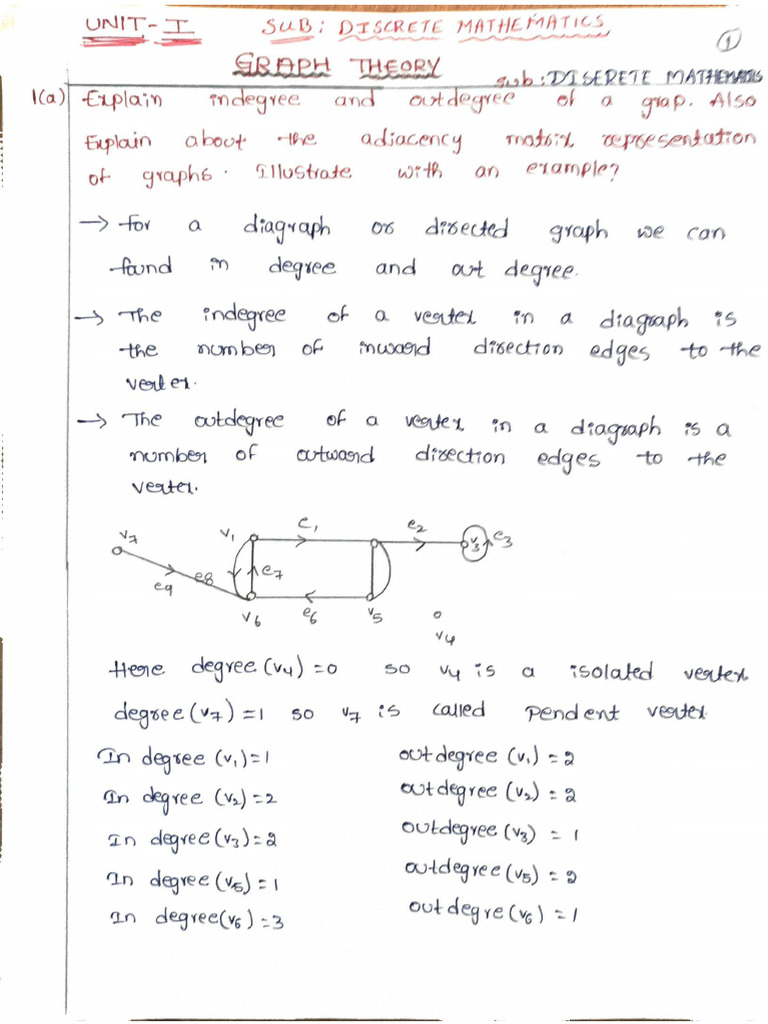 UNIT-I SUB: DISCRETE MATHEMATICS
1
GRAPH THEORY
sub: DISERETE MATHEMATICS
1(a) Explain indegree and outdegree of a grap. Also
Explain about the adjacency matrix representation
of graphs. Illustrate with an example?
→ for a diagraph or directed graph we can
found in degree and out degree.
→ The indegree of a vertex in a diagraph is
the number of inward direction edges to the
vertex.
→ The outdegree of a vertex in a diagraph is a
number of outward direction edges to the
vertex.
v7 v1 e1 e2 v3 e3
e9 e8 e7
v6 e6 v5
v4
Here degree (v4) = 0 so v4 is a isolated vertex
degree (v7) = 1 so v7 is called pendent vertex
In degree (v1) = 1 outdegree (v1) = 2
In degree (v2) = 2 outdegree (v2) = 2
In degree (v3) = 2 outdegree (v3) = 1
In degree (v5) = 1 outdegree (v5) = 2
In degree (v6) = 3 outdegre (v6) = 1